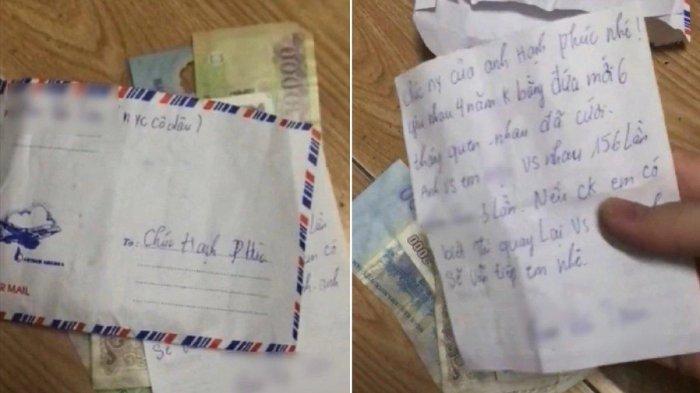 (nyc cô dâu)
To: Chúc Hạnh Phúc
AIR MAIL
lần
em có
anh
sẽ
0000
Chúc ny của anh Hạnh phúc nhé!
yêu nhau 4 năm k bằng đứa mới 6
tháng quen nhau đã cưới.
Anh vs em vs nhau 156 lần
lần. Nếu ck em có
biết thì quay lại vs
sẽ vẫn tiếp em nhé.
000